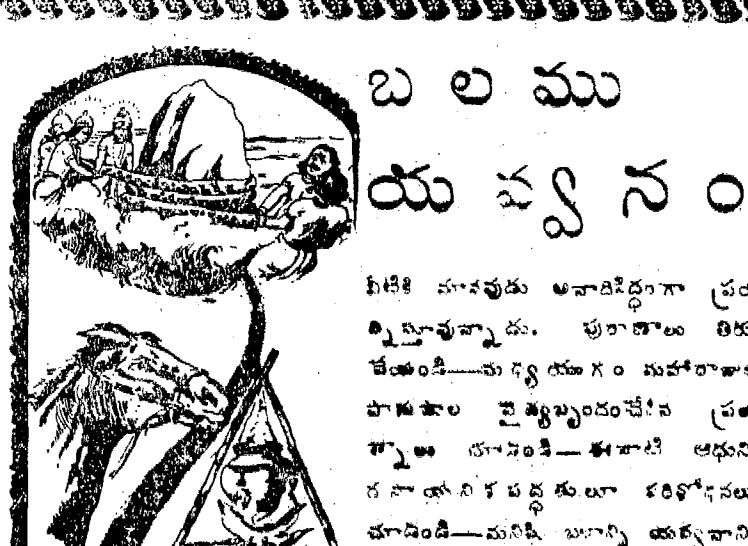 బలము
యవ్వనం
వీటికి మానవుడు అనాదిసిద్ధంగా ప్రయ
త్నిస్తూవున్నాడు. పురాణాలు తిరు
వేయండి—మధ్య యుగం మహారాజుల
వైద్యబృందంచేసిన ప్రయ
త్నాలు చూడండి—ఈనాటి ఆధుని
రసాయనిక పద్ధతులూ పరిశోధనలు
చూడండి—మనిషి బలాన్ని యవ్వనాని